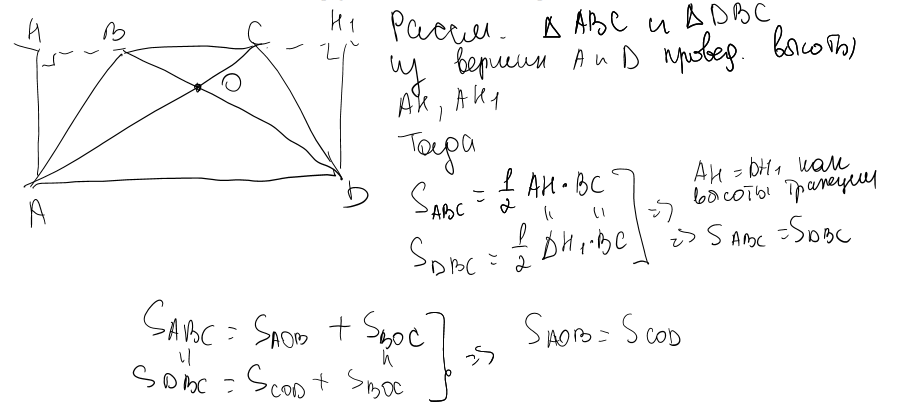 H B C H1
O
A D
Рассм. △ ABC и △ DBC
из вершин A и D провед. высоты
AH, AH1
Тогда
S_ABC = 1/2 AH · BC
S_DBC = 1/2 DH1 · BC
=> AH = DH1 как
высоты трапеции
=> S_ABC = S_DBC
S_ABC = S_AOB + S_BOC
S_DBC = S_COD + S_BOC
=> S_AOB = S_COD